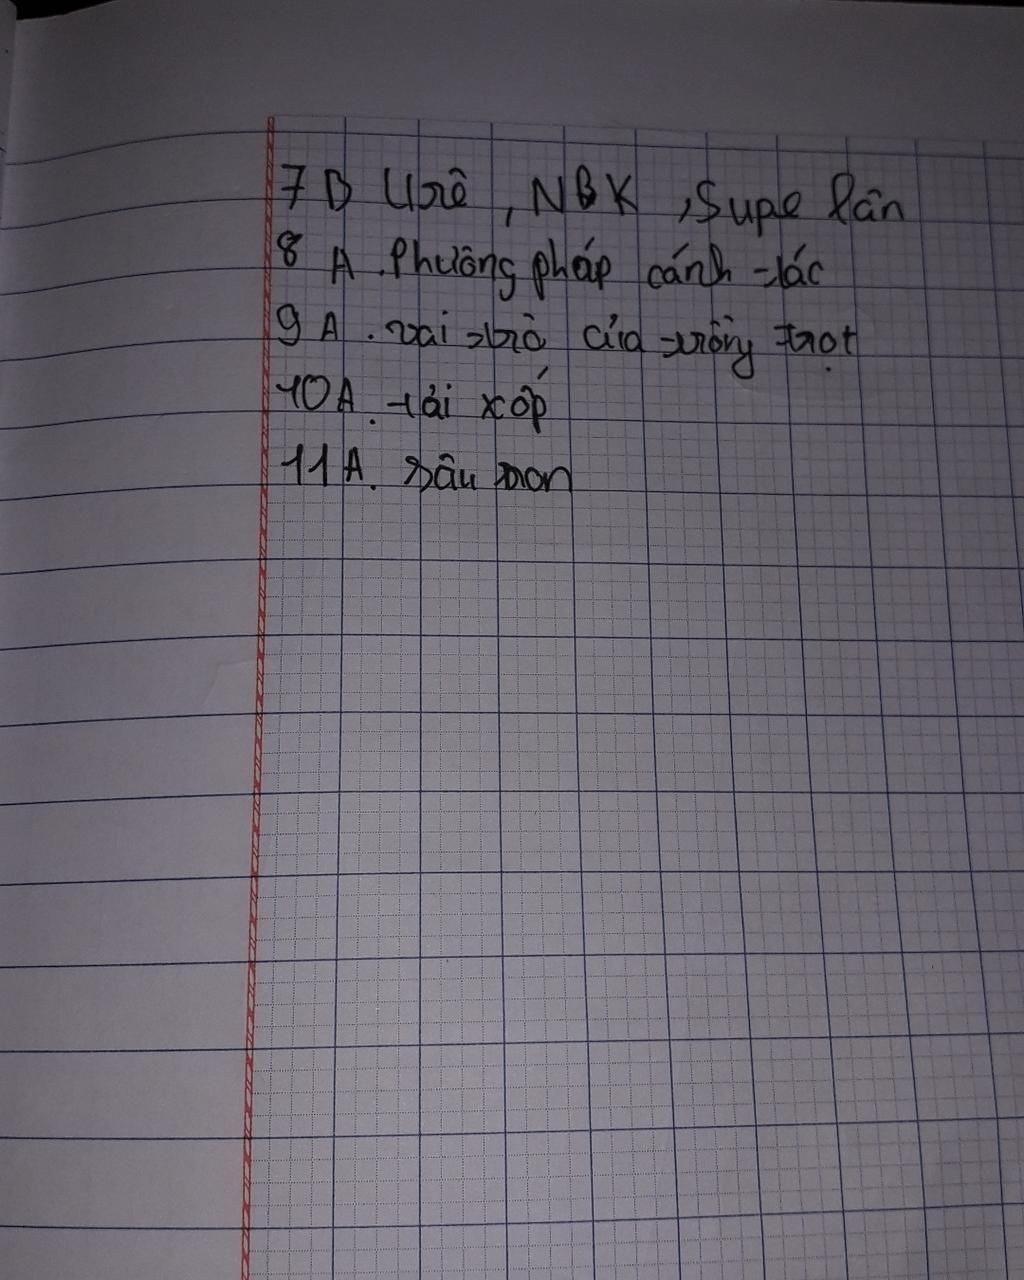 7 B Urê, NBK, Supe lân
8 A. Phương pháp cánh tác
9 A. vai trò của trồng trọt
10 A. tải xốp
11 A. sâu non